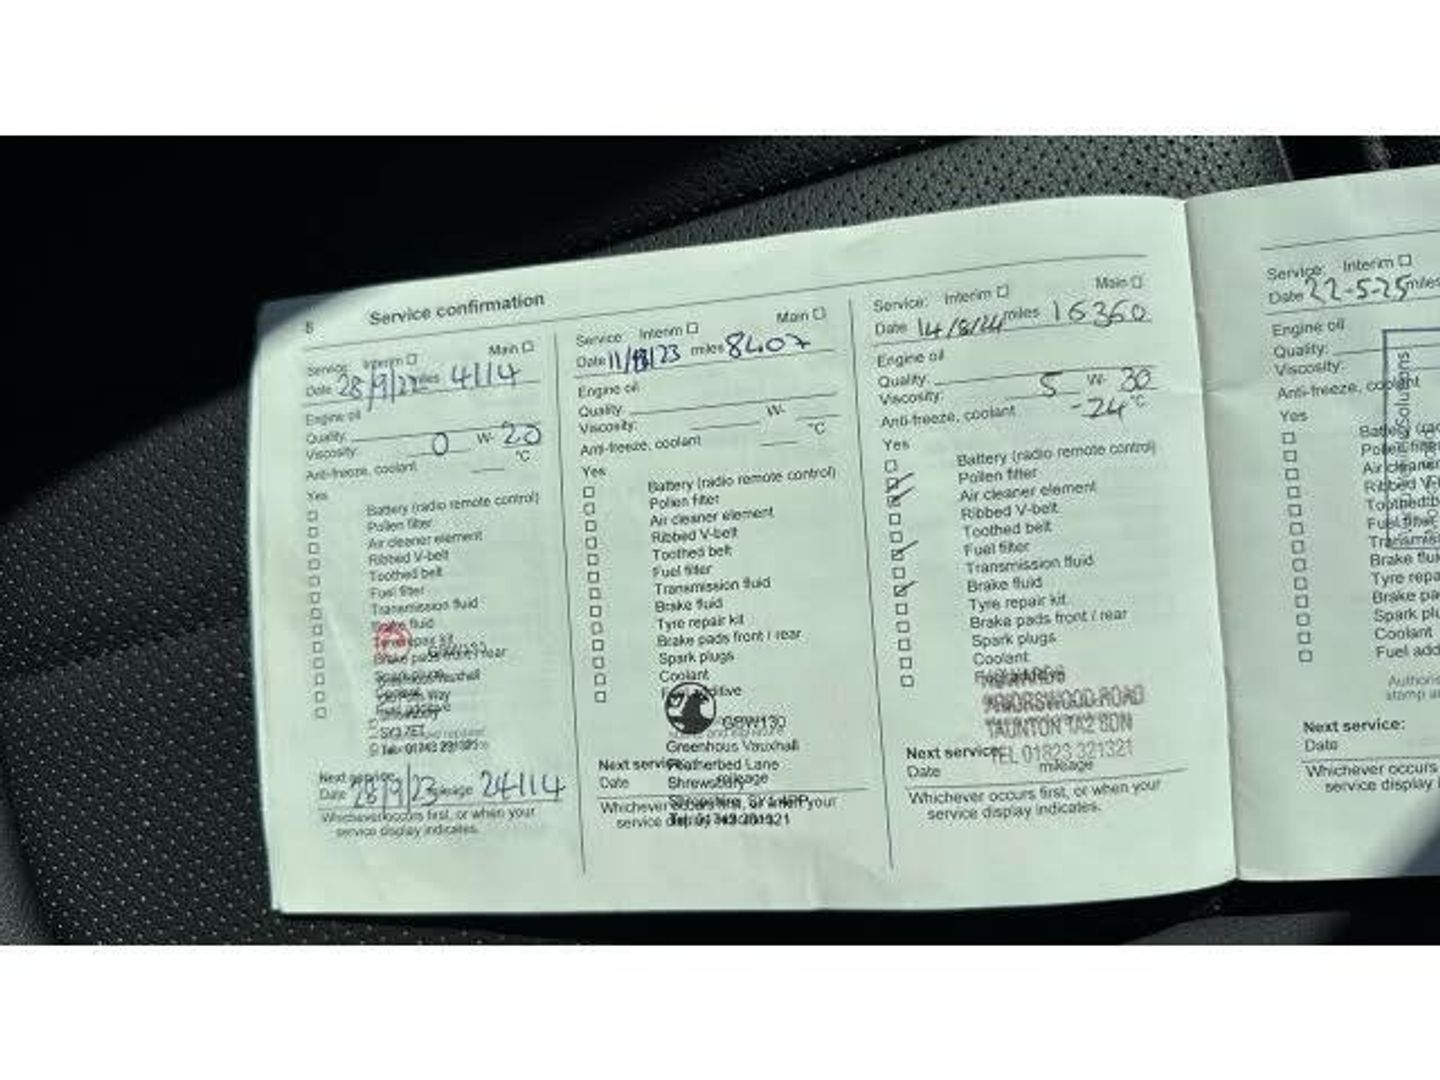 8 Service confirmation
Service: Interim Main
Date 28/9/22 miles 4114
Engine oil
Quality:
Viscosity: 0 W- 20
Anti-freeze, coolant °C
Yes
Battery (radio remote control)
Pollen filter
Air cleaner element
Ribbed V-belt
Toothed belt
Fuel filter
Transmission fluid
Brake fluid
Tyre repair kit
Brake pads front / rear
Next service:
Date 28/9/23 mileage 24114
Whichever occurs first, or when your
service display indicates.
Service: Interim Main
Date 11/ /23 miles 8407
Engine oil
Quality:
Viscosity: W-
Anti-freeze, coolant °C
Yes
Battery (radio remote control)
Pollen filter
Air cleaner element
Ribbed V-belt
Toothed belt
Fuel filter
Transmission fluid
Brake fluid
Tyre repair kit
Brake pads front / rear
Spark plugs
Coolant
Fuel additive
GBW130
Greenhous Vauxhall
Next service: Featherbed Lane
Date Shrewsbury mileage
Whichever occurs first, or when your
service display indicates.
Service: Interim Main
Date 14/8/24 miles 16360
Engine oil
Quality:
Viscosity: 5 W- 30
Anti-freeze, coolant -24 °C
Yes
Battery (radio remote control)
Pollen filter
Air cleaner element
Ribbed V-belt
Toothed belt
Fuel filter
Transmission fluid
Brake fluid
Tyre repair kit
Brake pads front / rear
Spark plugs
Coolant
Fuel additive
PRIORSWOOD ROAD
TAUNTON TA2 8DN
Next service: TEL 01823 321321
Date mileage
Whichever occurs first, or when your
service display indicates.
Service: Interim
Date 22-5-25 miles
Engine oil
Quality:
Viscosity:
Anti-freeze, coolant
Yes
Solutions
Air cleaner
Ribbed V-b
Fuel filter
Transmis
Brake flui
Tyre repa
Brake pa
Spark pl
Coolant
Fuel add
Authoris
stamp a
Next service:
Date
Whichever occurs
service display i